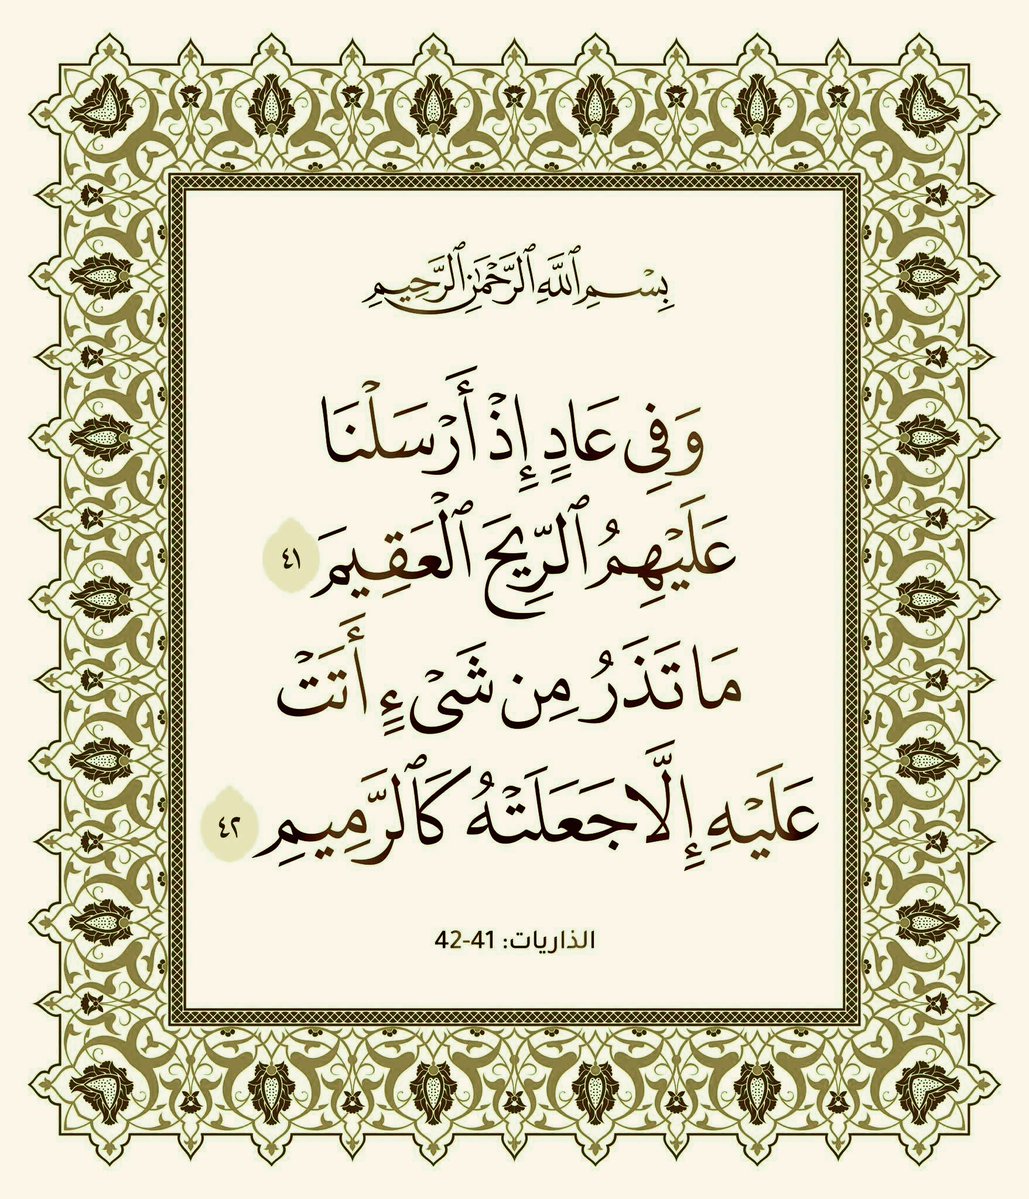 بِسْمِ ٱللَّهِ ٱلرَّحْمَٰنِ ٱلرَّحِيمِ
وَفِى عَادٍ إِذْ أَرْسَلْنَا
عَلَيْهِمُ ٱلرِّيحَ ٱلْعَقِيمَ ٤١
مَا تَذَرُ مِن شَىْءٍ أَتَتْ
عَلَيْهِ إِلَّا جَعَلَتْهُ كَٱلرَّمِيمِ ٤٢
الذاريات: 41-42